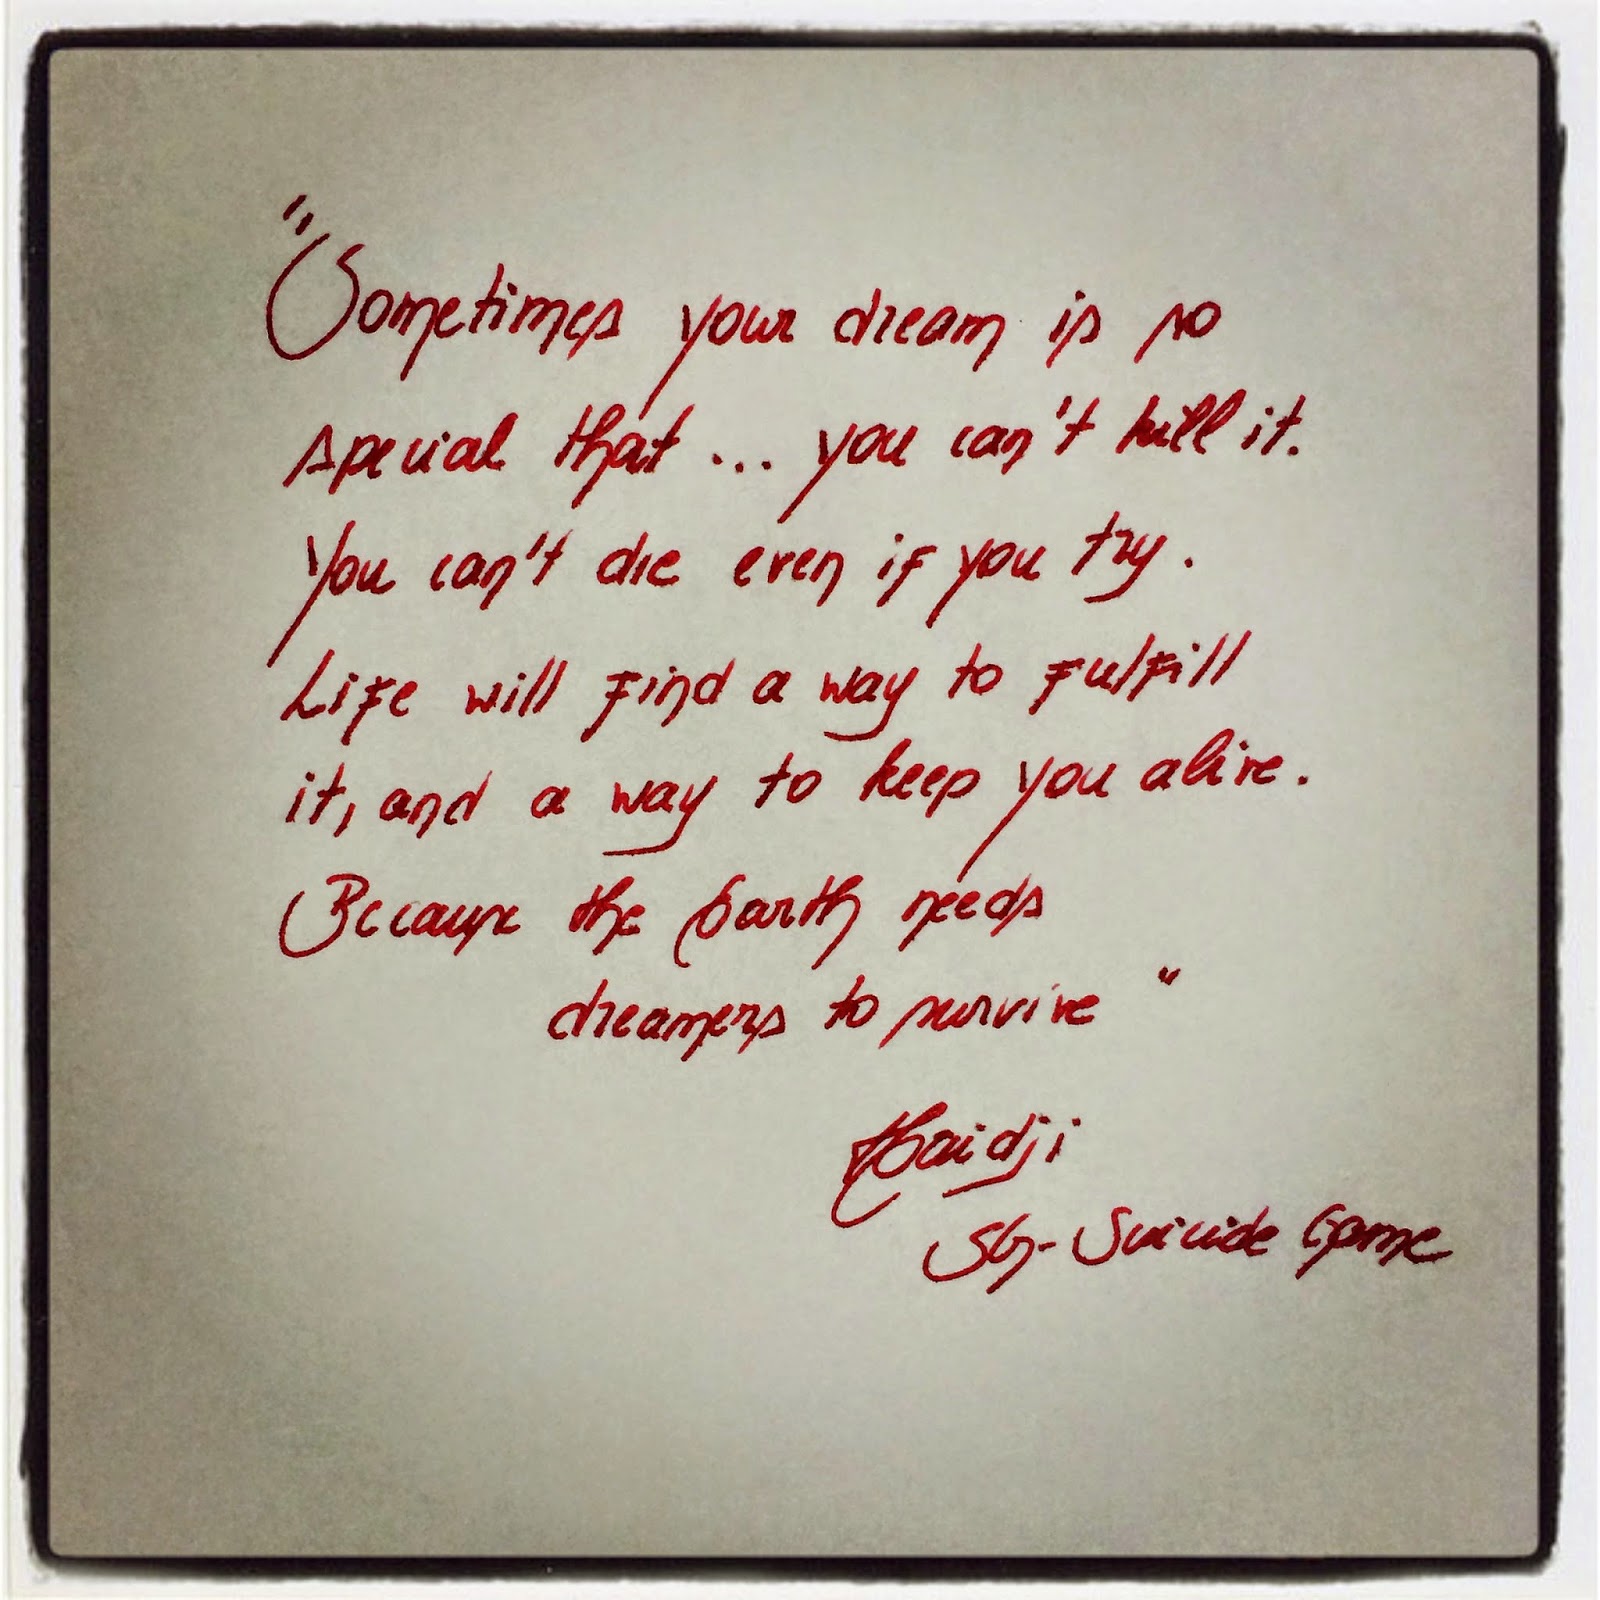 "Sometimes your dream is so
special that ... you can't kill it.
You can't die even if you try.
Life will find a way to fulfill
it, and a way to keep you alive.
Because the Earth needs
dreamers to survive"
Haidji
SG - Suicide Game